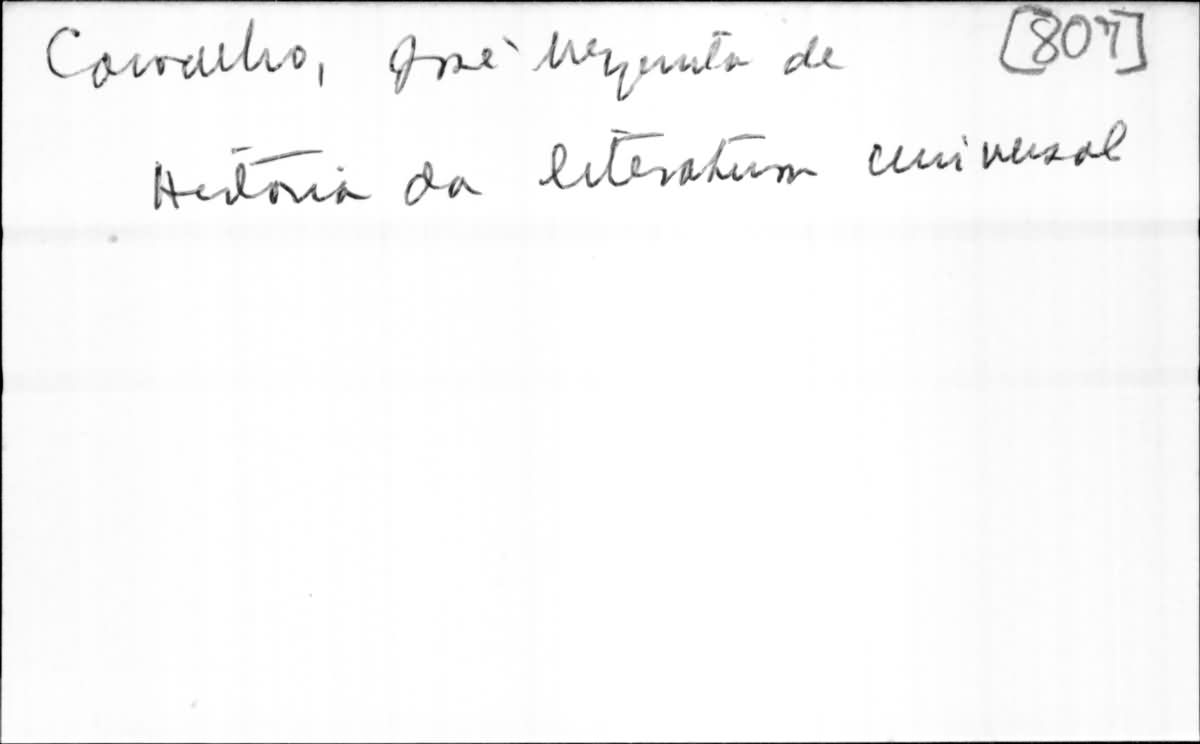 Carvalho, José Mesquita de [807]
História da literatura universal